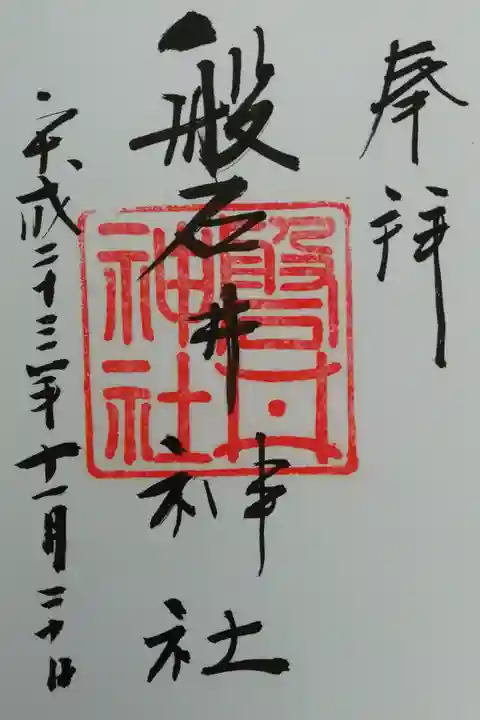 奉拝
磐井神社
磐井
神社
平成二十三年十一月二十日